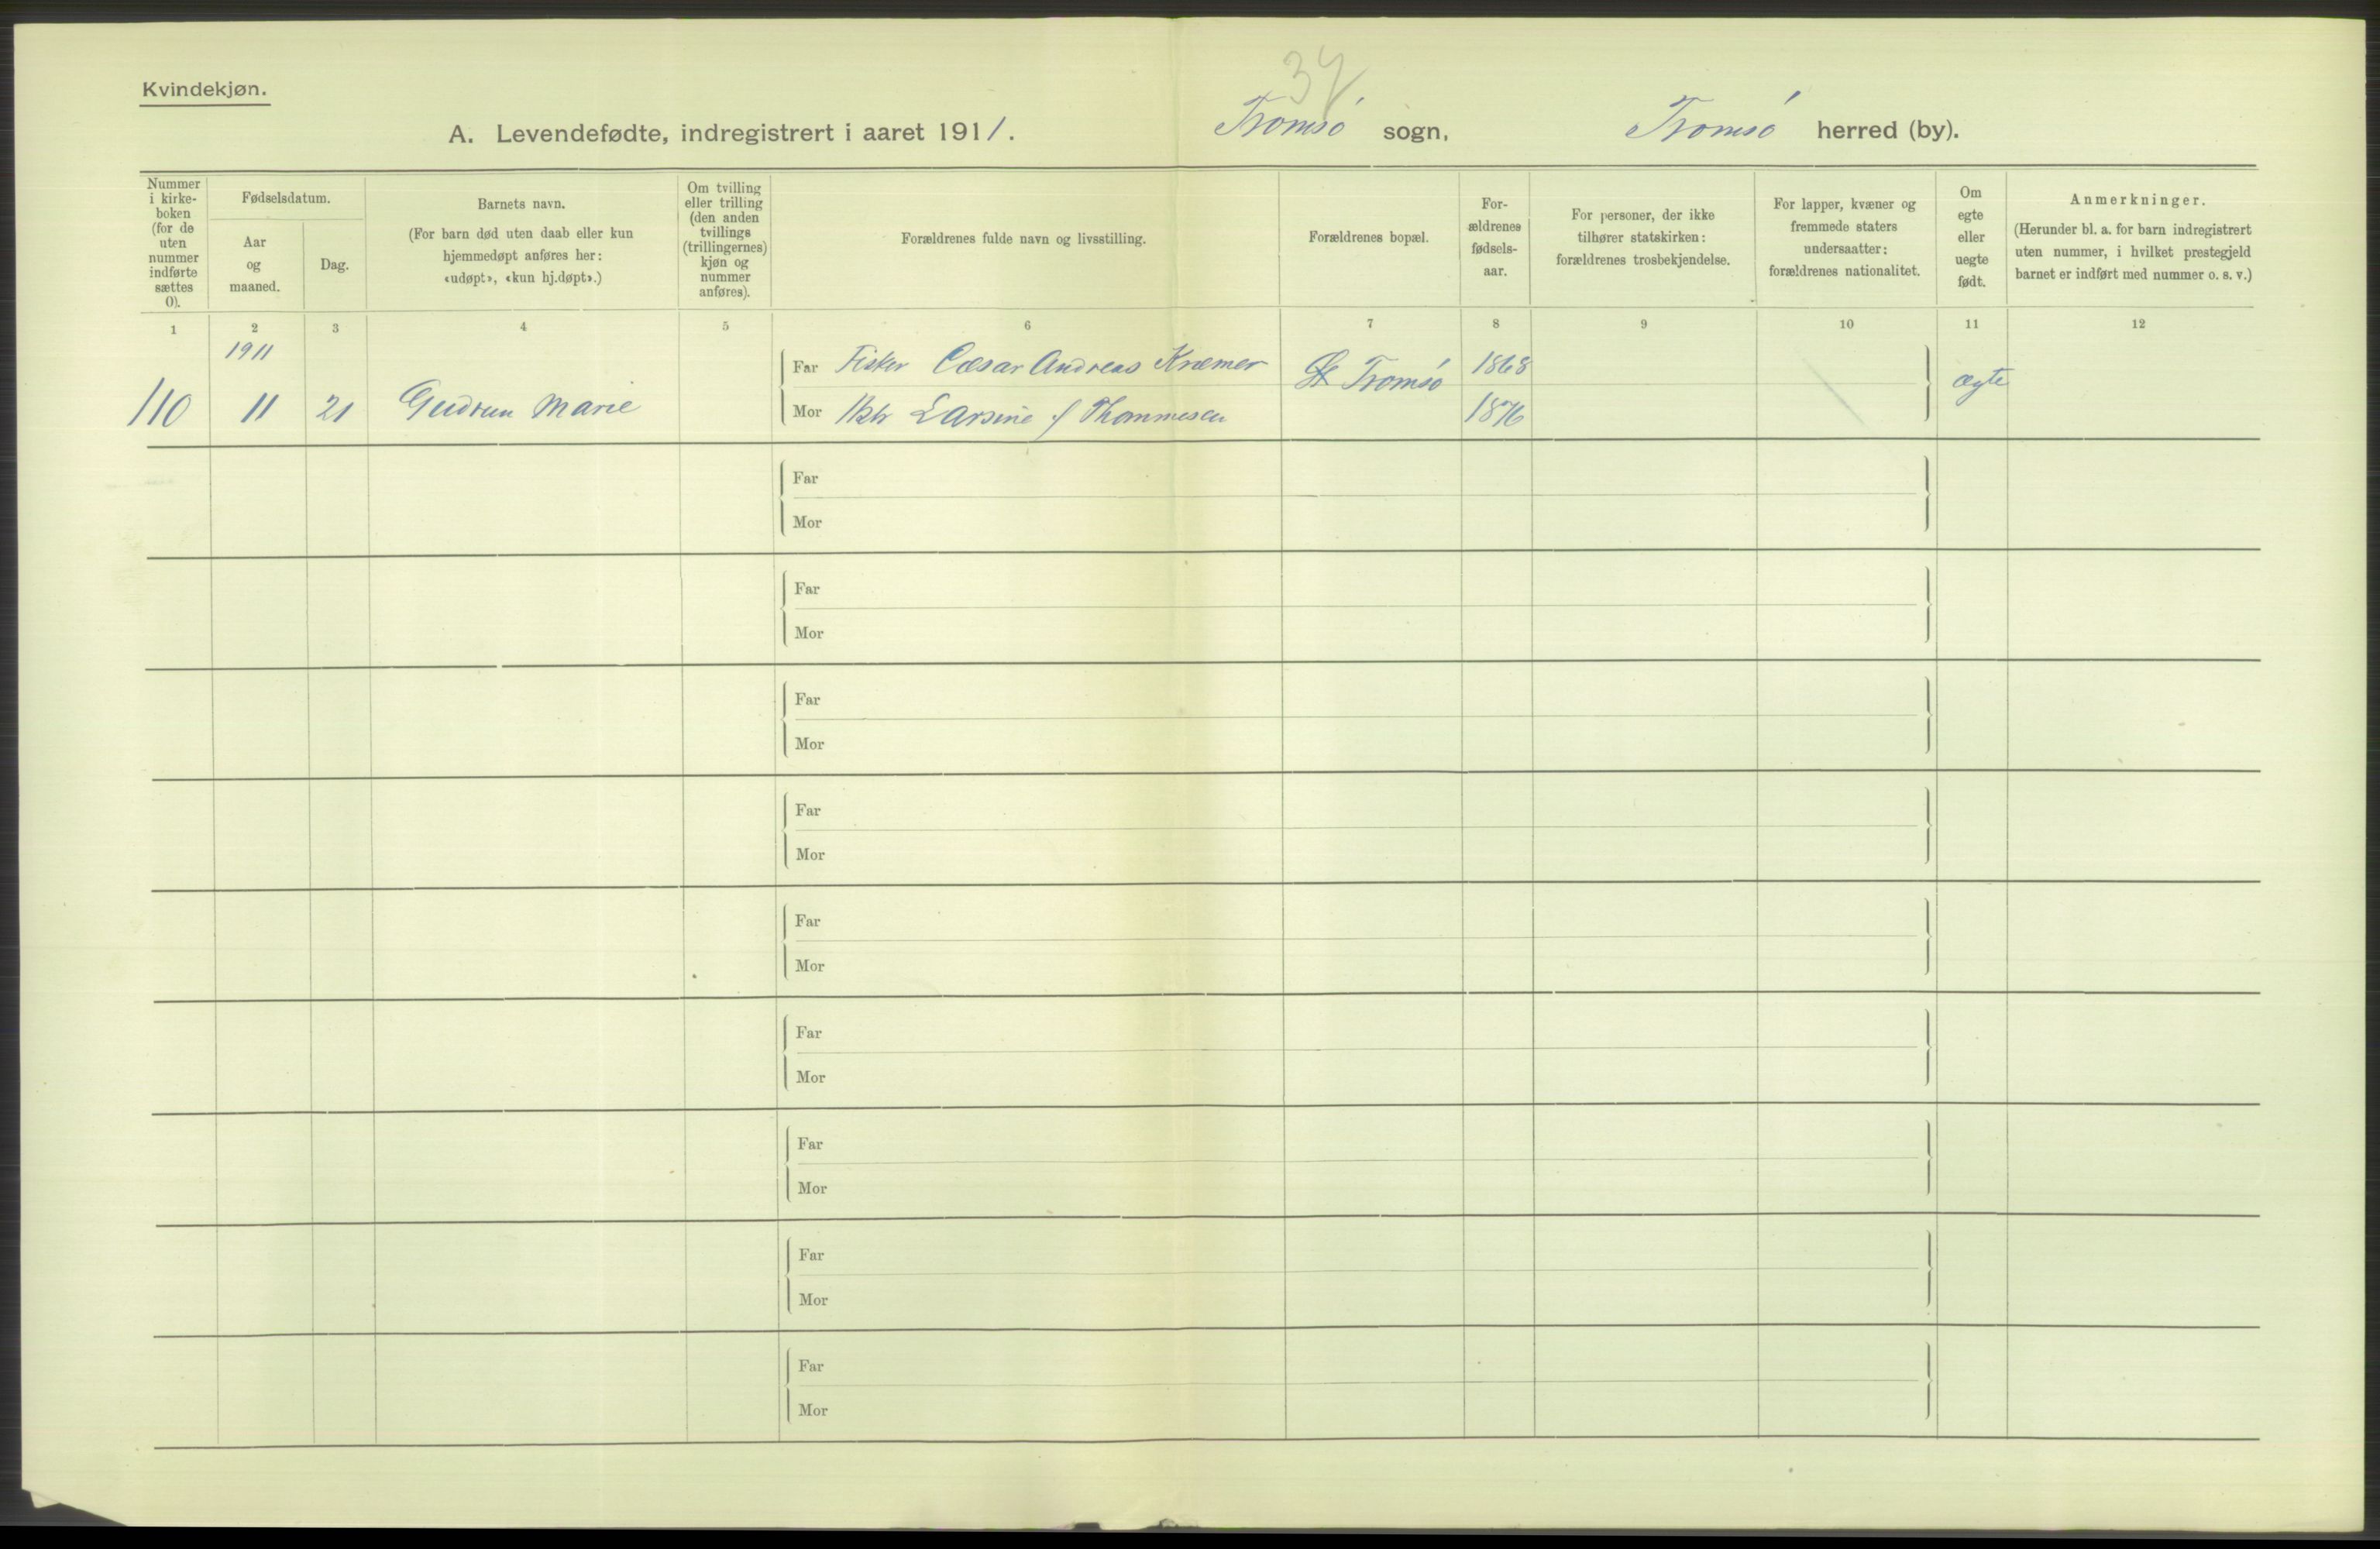 37
Kvindekjøn.
A. Levendefødte, indregistrert i aaret 1911. Tromsó sogn, Tromsó herred (by).
Nummer i kirke- boken (for de uten nummer indførte sættes 0).
Fødselsdatum.
Aar og maaned.
Dag.
Barnets navn.
(For barn død uten daab eller kun
hjemmedøpt anføres her:
«udøpt», «kun hj.døpt».)
Om tvilling eller trilling (den anden tvillings (trillingernes) kjøn og nummer anføres).
Forældrenes fulde navn og livsstilling.
Forældrenes bopæl.
For- ældrenes fødsels- aar.
For personer, der ikke
tilhører statskirken:
forældrenes trosbekjendelse.
For lapper, kvæner og
fremmede staters
undersaatter:
forældrenes nationalitet.
Om egte eller uegte født.
Anmerkninger.
(Herunder bl. a. for barn indregistrert
uten nummer, i hvilket prestegjeld
barnet er indført med nummer o. s. v.)
1 2 3 4 5 6 7 8 9 10 11 12
1911
Far Fisker Cæsar Andreas Kræmer Tromsó 1868 ægte
110 11 21 Gudrun Marie Mor Larsine f Thommesen 1876
Far
Mor
Far
Mor
Far
Mor
Far
Mor
Far
Mor
Far
Mor
Far
Mor
Far
Mor
Far
Mor